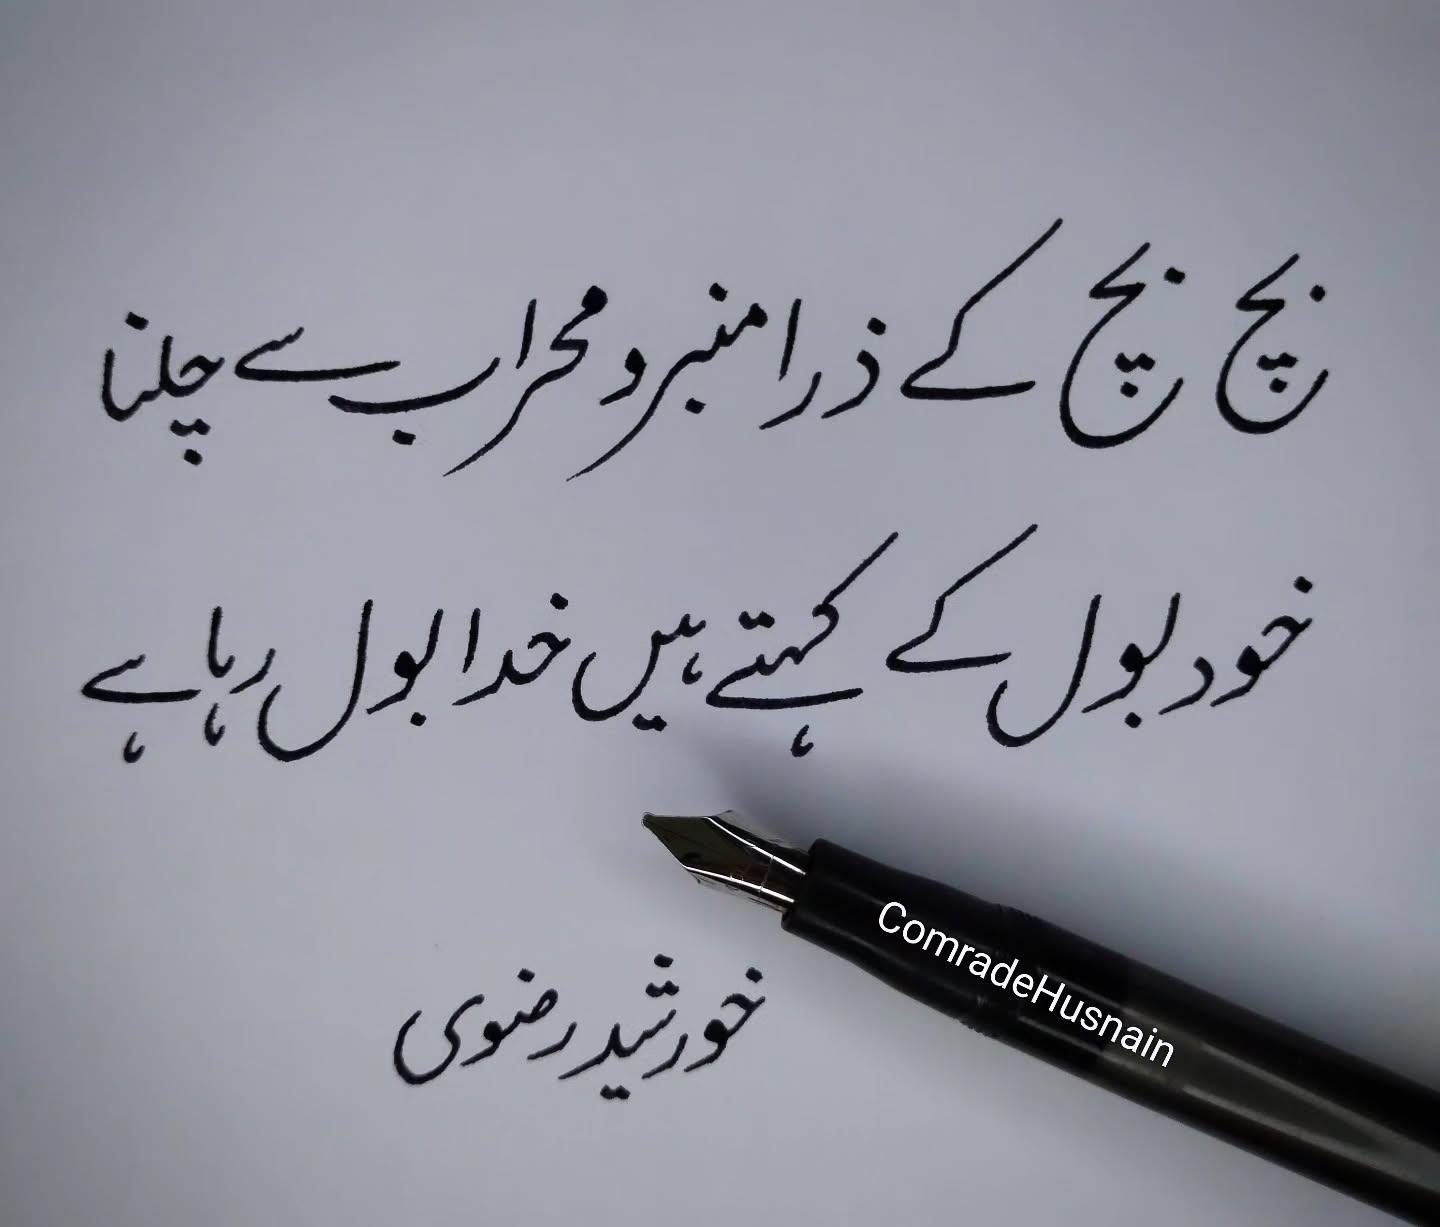 بچ بچ کے ذرا منبر و محراب سے چلنا
خود بول کے کہتے ہیں خدا بول رہا ہے
خورشید رضوی
ComradeHusnain